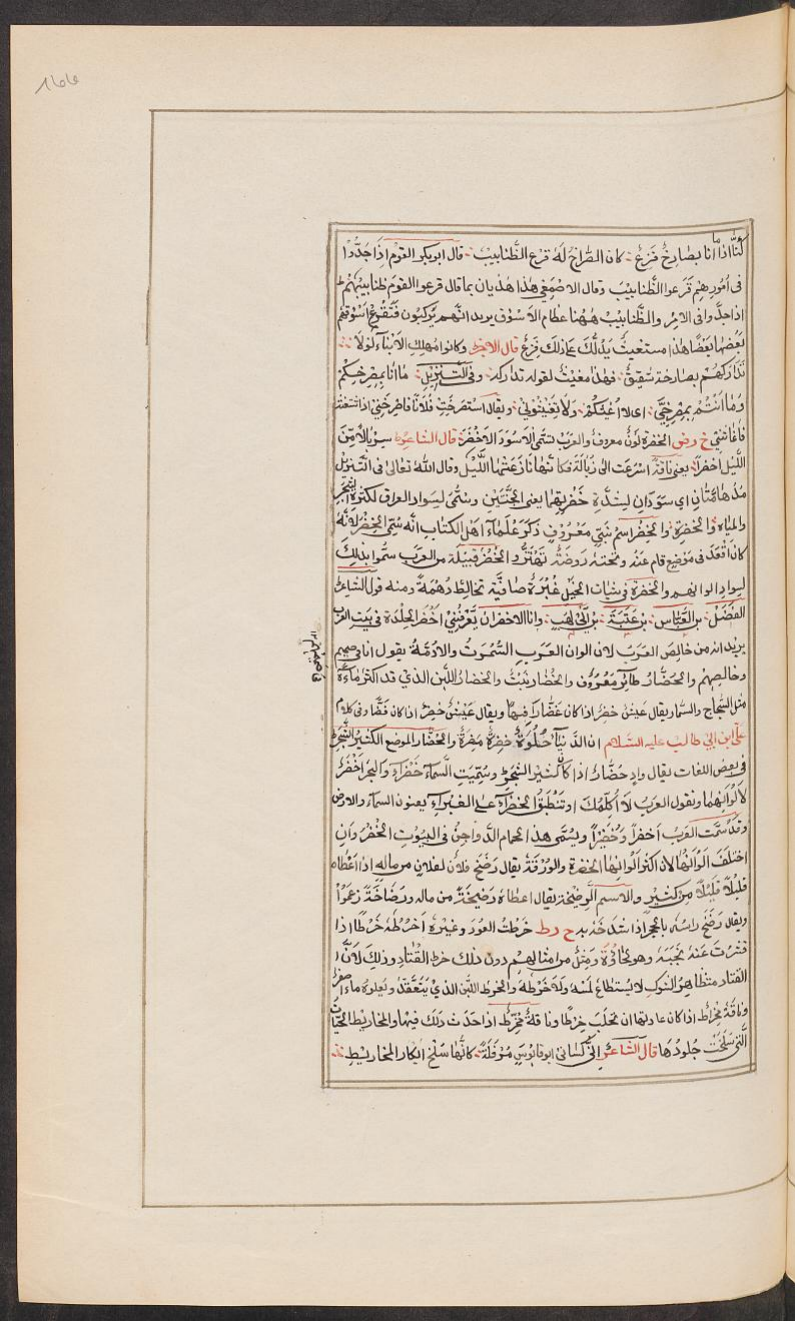 كنّا اذا ما انا بصارخٌ فَزِعٌ كان الصُّراخُ لَهُ قرع الظّنابيب قال ابو بكر القوم اذا جدّوا
فى اُمورهم قَرَعوا الظّنابيبْ وقال الاصمعى هذا هذيان بما قال قرعوا القوم ظنابيبهم
اذا جدّوا فى الامر والظّنابيبْ ههنا عظام الاسؤق يريد انّهم يركبون فتقرع اسوقهم
بعضها بعضا هذا مستغيثٌ يدلّك على ذلك فزع قال الاخر وكانوا مهلك الابناء لولا
تداركهم بصارخة شقيق فهذا مغيثٌ لقوله تداركه وفى التّنزيل ما انا بمصرخكم
وما انتم بمصرخىّ اى لا اغيثكم ولا تغيثونى ويقال استصرختُ فلانا فاصرخنى اذا استغثته
فاغاثنى خ رض الخضرة لونٌ معروف والعرب تسمّى الاسود الاخضر قال الشاعر سورا من
اللّيل اخضرا يعنى ناقة اسرعت الى زبالة فكانّها نازعتها اللّيل وقال الله تعالى فى التنزيل
مدهامّتان اى سوداوان لشدّة خضرتهما يعنى الجنّتين وسمّى ليسواد العراق لكثرة الشجر
والمياه والخضرة والخضر اسم نبىّ معروف ذكر علماء اهل الكتاب انّه سمّى الخضر لانّه
كان اذا قعد فى موضع قام عنه وتحته روضة تهتزّ والخضر قبيلة من العرب سمّوا بذلك
لسواد الوانهم والخضرة فى شيات الخيل غبرة صافية تخالط دُهمةً ومنه قول الشاعر
الفضل بن العبّاس بن عتبة بن ابى لهب وانا الاخضر ان يعرفنى اخضر الجلدة فى بيت العرب
يريد انه من خالص العرب لان الوان العرب السُّمرة والادمة يقول انا فى صميم
وخالصهم والخضّار طائر معروف والخضار نبتٌ والخضار اللّبن الذى قد اكثر ماءه
مثل السّجاج والسّمار يقال عيش خضر اذا كان غضّا رافها ويقال عيش خضر اذا كان غضّا وفى كلام
علىّ ابن ابى طالب عليه السّلام انّ الدّنيا حلوة خضرة مضرة والخضّار الموضع الكثير الشجر
فى بعض اللغات يقال واد خضّار اذا كان كثير الشجر وسمّيت السّماء خضراء والبحر اخضر
لالوانهما وتقول العرب لا اكلّمك او تنطبق الخضراء على الغبراء يعنون السماء والارض
وقد سمّت العرب اخضر وخضيرا ويسمّى هذا الحمام الدّواجن فى البيوت الخضر وان
اختلف الوانها لان اكثر الوانها الخضرة والورقة يقال رضخ فلان لفلان من ماله اذا اعطاه
قليلا قليلا من كثير والاسم الرضيخة يقال اعطاه رضيخة من ماله ورضاخة زعموا
ويقال رضخ راسه بالحجر اذا شدخه به خ رط خرطتُ العود وغيره اخرطه خرطا اذا
قشرت عنه نجبه وهو لحاؤه ومثل من امثالهم دون ذلك خرط القتاد وذلك لانّ
القتاد متظاهر الشوك لا يستطاع لمسه ولا خرطه والخرط اللبن الذى يتعقّد ويعلوه ماء اصفر
وناقة مخراط اذا كان عادتها ان تحلب خرطا وناقة مخرط اذا حدث ذلك فيها والمخاريط الحيّات
الّتى سلخت جلودها قال الشاعر انّى كسانى ابو قابوس مرفلة كانّها سلخ ابكار المخاريط